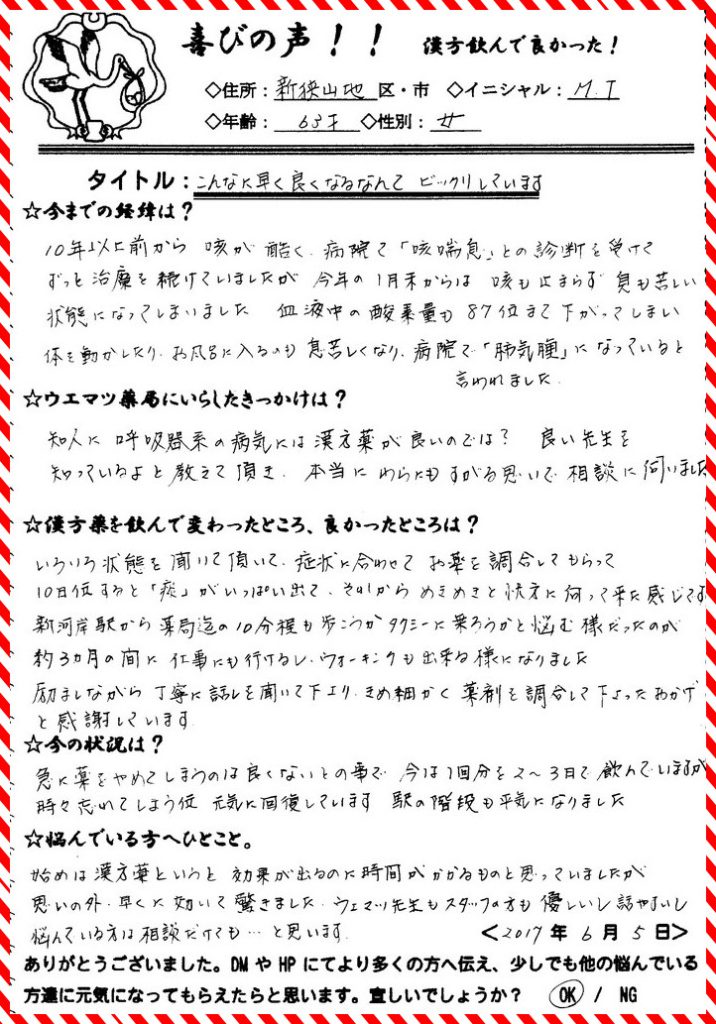 喜びの声！！ 漢方飲んで良かった！
◇住所：新狭山地区・市 ◇イニシャル：M.T
◇年齢：63才 ◇性別：女
タイトル：こんなに早く良くなるなんて ビックリしています
☆今までの経緯は？
10年以上前から 咳が酷く、病院で「咳喘息」との診断を受けて
ずっと治療を続けていましたが 今年の1月末からは 咳も止まらず 息も苦しい
状態になってしまいました 血液中の酸素量も87位まで下がってしまい
体を動かしたり、お風呂に入るのも 息苦しくなり、病院で「肺気腫」になっていると
言われました。
☆ウエマツ薬局にいらしたきっかけは？
知人に 呼吸器系の病気には漢方薬が良いのでは？ 良い先生を
知っているよと教えて頂き、本当に わらにもすがる思いで 相談に伺いました
☆漢方薬を飲んで変わったところ、良かったところは？
いろいろ状態を聞いて頂いて、症状に合わせて お薬を調合してもらって
10日位すると「痰」がいっぱい出て、それから めきめきと快方に向って来た感じです
新河岸駅から薬局迄の10分程も歩こうかタクシーに乗ろうかと悩む様だったのが
約3ヵ月の間に 仕事にも行けるし、ウォーキングも出来る様になりました
励ましながら 丁寧に話しを聞いて下さり、きめ細かく 薬剤を調合して下さったおかげ
と感謝しています。
☆今の状況は？
急に薬をやめてしまうのは良くないとの事で 今は1回分を2～3日で飲んでいますが
時々忘れてしまう位 元気に回復しています 駅の階段も平気になりました
☆悩んでいる方へひとこと。
始めは漢方薬というと 効果が出るのに時間がかかるものと思っていましたが
思いの外、早くに効いて驚きました。ウェマツ先生もスタッフの方も優しいし話やすいし
悩んでいる方は相談だけでも…と思います。 ＜2017年6月5日＞
ありがとうございました。DMやHPにてより多くの方へ伝え、少しでも他の悩んでいる
方達に元気になってもらえたらと思います。宜しいでしょうか？ OK / NG